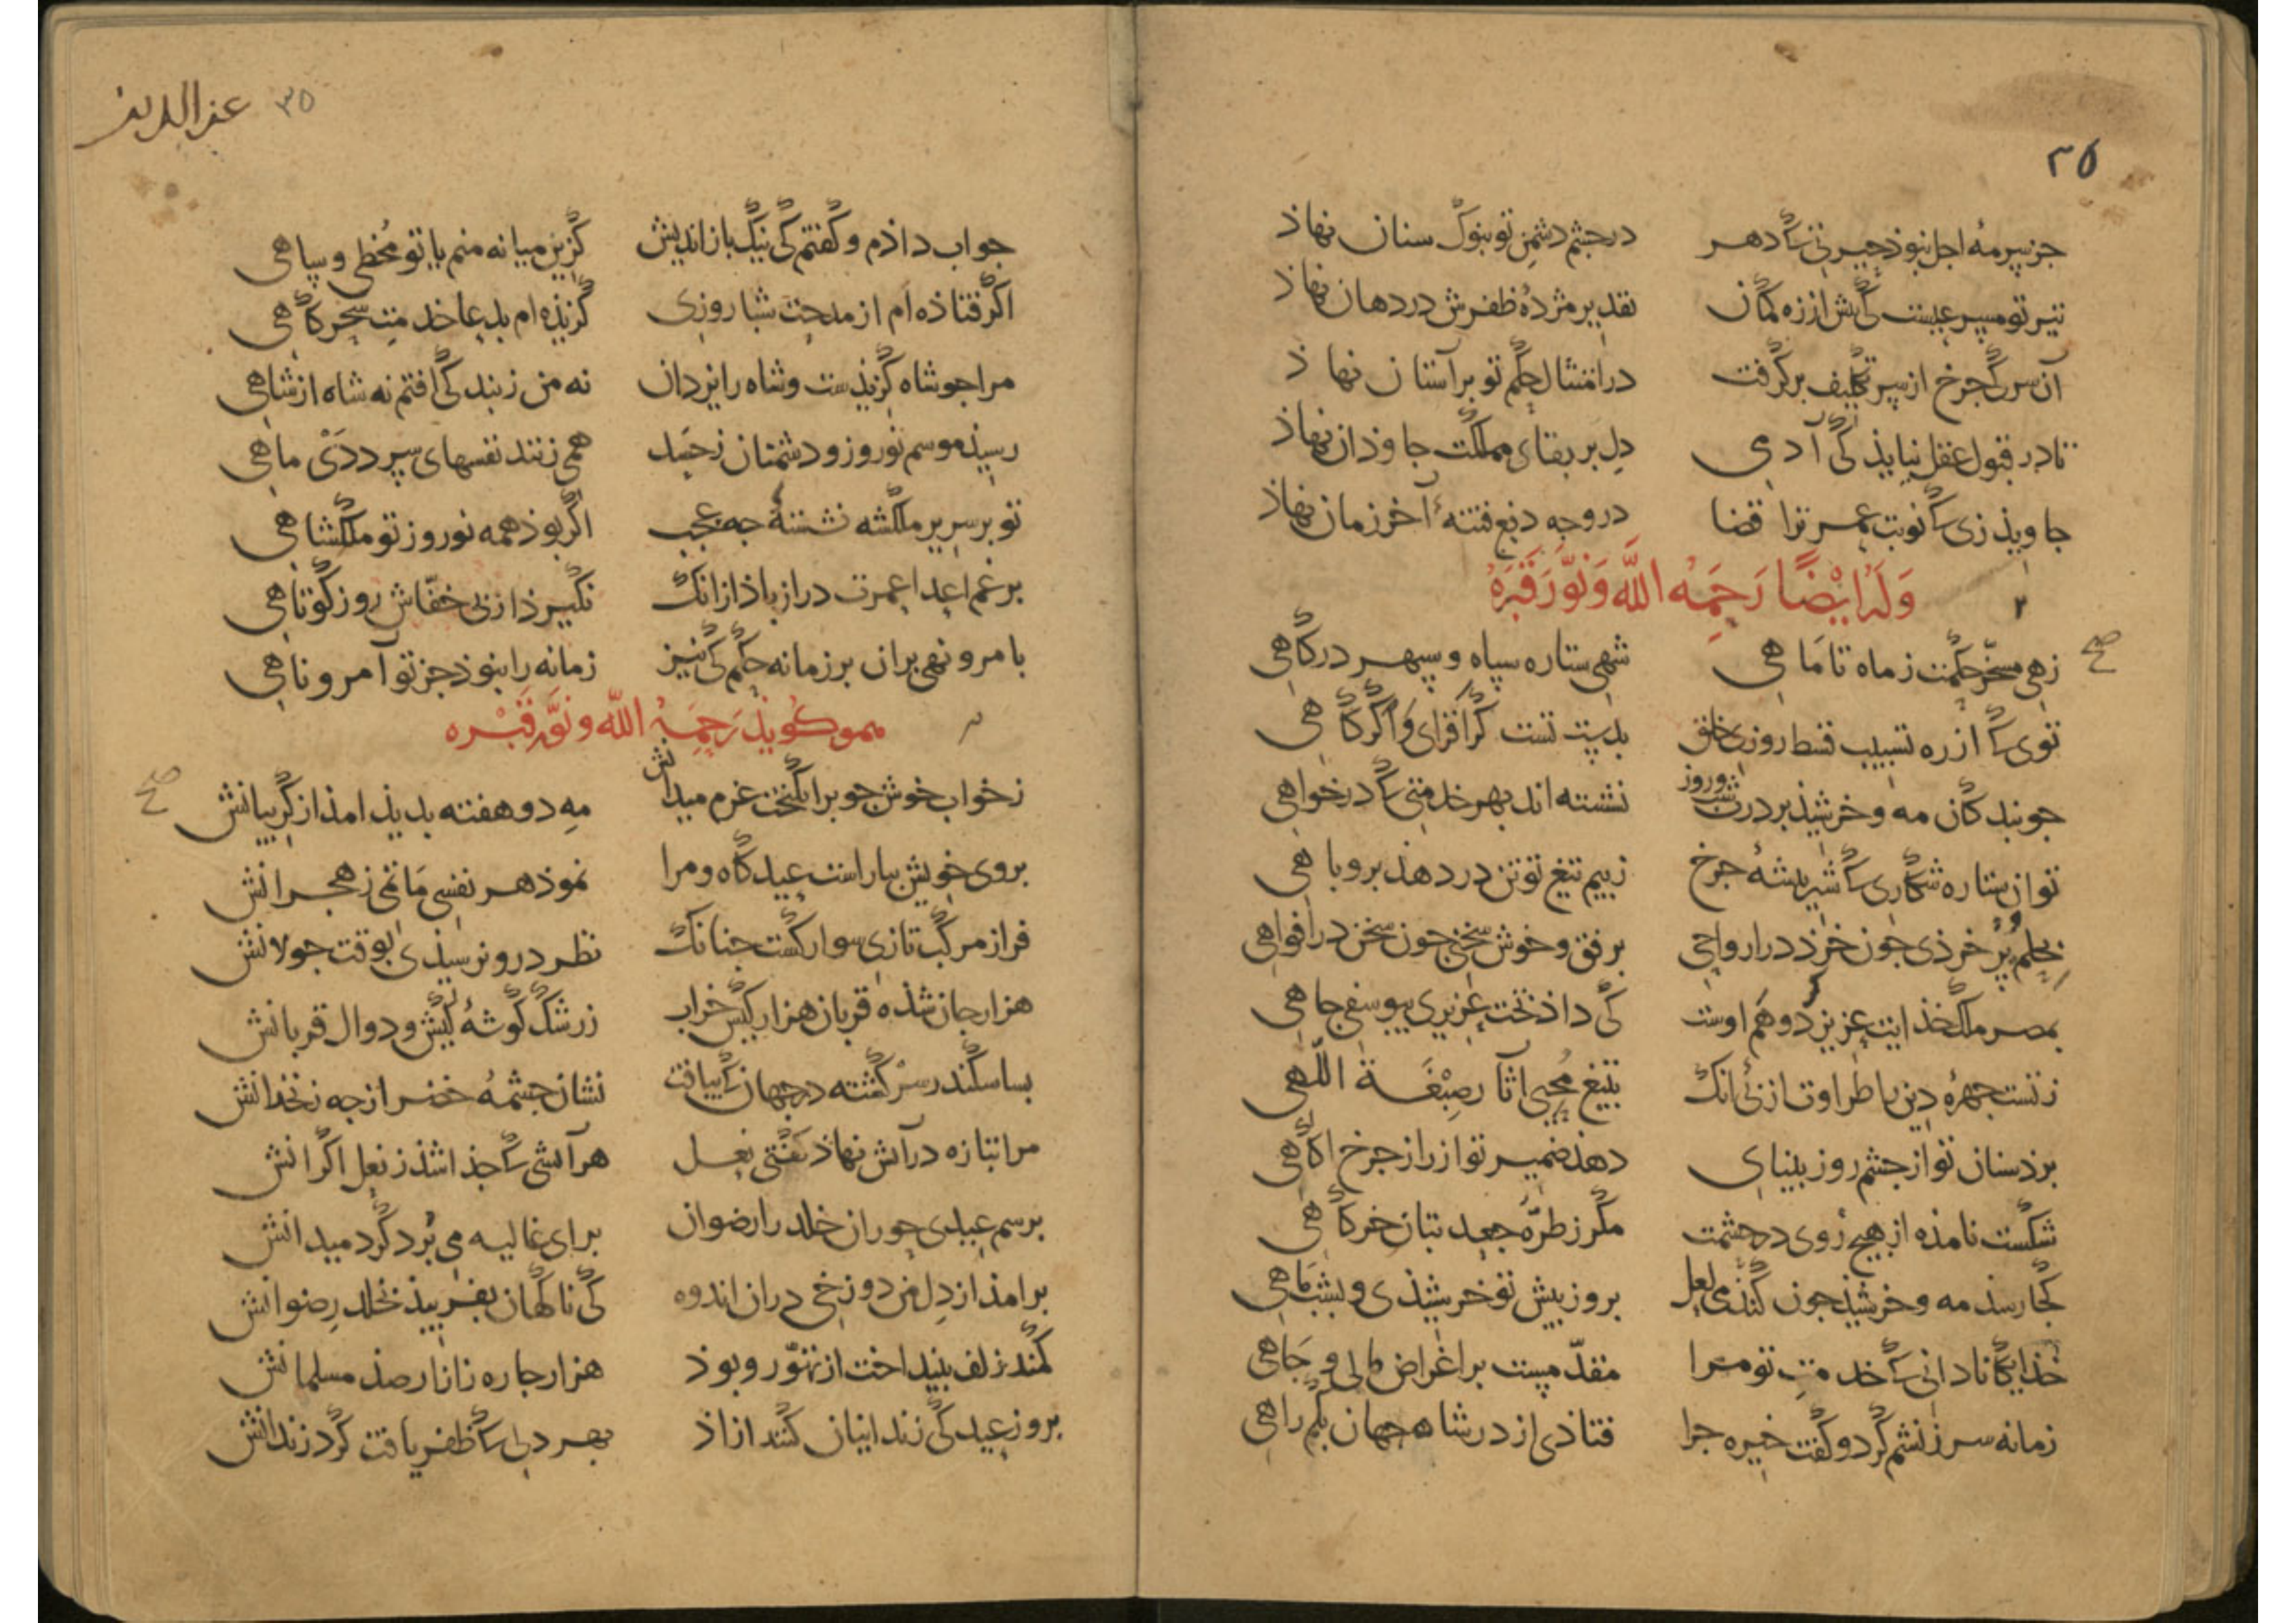 ۲۵
جز سرمهٔ اجل نبوذ چیر نی کی دهر در چشم دشمن تو بنوک سنان نهاذ
تیر تو مسرعیست کی بیش از زه کمان نقد بر مژدهٔ ظفرش در دهان نهاذ
آن سر کی چرخ از سر تکلیف برگرفت در امتثال حکم تو بر آستان نهاذ
تا در قبول عقل نیایذ کی آدمی دل بر بقای مملکت جاوذان نهاذ
جاویذ زی کی نوبت عمر ترا قضا در وجه دفع فتنهٔ آخر زمان نهاذ
وَلَهُ اَیْضًا رَحِمَهُ اللّٰه وَنَوَّرَ قَبْرَهُ
زهی مسخّر حکمت ز ماه تا ماهی شهی ستاره سپاه و سپهر درگاهی
توی کی از ره تسبیب قسط روزی خلق بدست تست گر افزای و اگر کاهی
چو بندکان مه و خرشیذ بر درت شب و روز نشسته اند بهر خدمتی کی درخواهی
تو ان ستاره شکاری کی شیر بیشهٔ چرخ ز بیم تیغ تو تن در دهذ بروباهی
بحلم پر خرذی چون خرذ در ارواحی برفق و خوش سخنی چون سخن در افواهی
بمصر ملک خذایت عزیز کرد و هم اوست کی داذ تخت عزیزی بیوسفی چاهی
ز تست چهرهٔ دین با طراوت از پی انک بتیغ محیی آثار صِبْغَة اللّهی
برد سنان تو از چشم روز بینایی دهذ ضمیر تو از راز چرخ اکاهی
شکست نامذه از هیچ روی در حشمت مگر ز طرّهٔ جعد بتان خرگاهی
کجا رسذ مه و خرشیذ چون کنذ می لعل بروز پیش تو خرشیذی و بشب ماهی
خذایگانا دانی کی خدمت تو مرا مقدّمست بر اغراض مالی و جاهی
زمانه سرزنشم کرد و گفت خیره چرا فتاذی از در شاه جهان بگم راهی
۳۵ عز الدین
جواب داذم و گفتم کی نیک باز اندیش گزین میانه منم یا تو مُخطی و ساهی
اگر فتاذه ام از مدحت شبا روزی گزیذه ام بدعا خدمت سحرگاهی
مرا چو شاه گزیذست و شاه را یزدان نه من ز بندگی افتم نه شاه از شاهی
رسیذ موسم نوروز و دشمنان ز حسد همی زنند نفسهای سرد دَیْ ماهی
تو بر سریر ملکشه نشستهٔ چه عجب اگر بوذ همه نوروز تو ملکشاهی
برغم اعدا عمرت دراز باذ ازانک نگیرذ از پی خفّاش روز کوتاهی
بامر و نهی بران بر زمانه حکم کی نیز زمانه را نبوذ جز تو آمر و ناهی
هموکویذ رَحِمَهُ اللّه و نوَّر قَبْره
ز خواب خوش چو برانگیخت عزم میدانش مهِ دو هفته بدیذ امذ از گریبانش
بروی خویش بیاراست عید گاه و مرا نموذ هر نفسی ماتمی ز هجرانش
فراز مرکب تازی سوار گشت چنانک نظر درو نرسیذی بوقت جولانش
هزار جان شذه قربان هزار کیش خراب ز رشک گوشهٔ کیش و دوال قربانش
بسا سکندر سرگشته در جهان کی بیافت نشان چشمهٔ خضر از چه زنخدانش
مرا بتازه در آتش نهاذ گفتی نعل هر آتشی کی جذا شذ ز نعل اکرانش
برسم عیدی حوران خلد را رضوان برای غالیه می بُرد گرد میدانش
برامذ از دل من دوزخی دران اندوه کی ناگهان بفریبذ بخلد رضوانش
کمند زلف بینداخت از تهوّر و بوذ هزار جاره زنانار صذ مسلمانش
بروز عید کی زندانیان کنند ازاذ بهر دلی کی ظفر یافت کرد زندانش